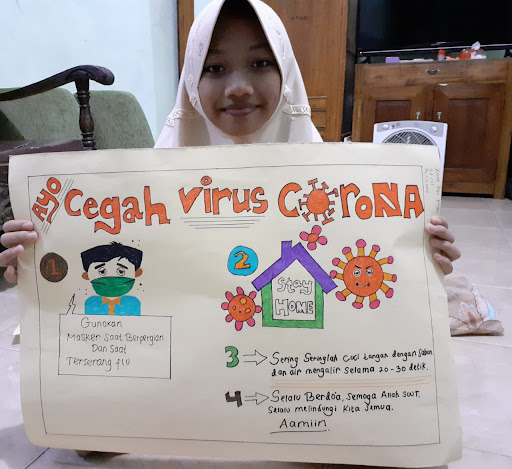 AYO Cegah Virus Corona
1
Gunakan
Masker Saat Berpergian
Dan Saat
Terserang flu
2
Stay
HOME
3 → Sering Seringlah Cuci tangan dengan Sabun
dan air mengalir selama 20-30 detik.
4 → Selalu Berdo'a, Semoga Allah SWT.
Selalu melindungi Kita Semua.
Aamiin